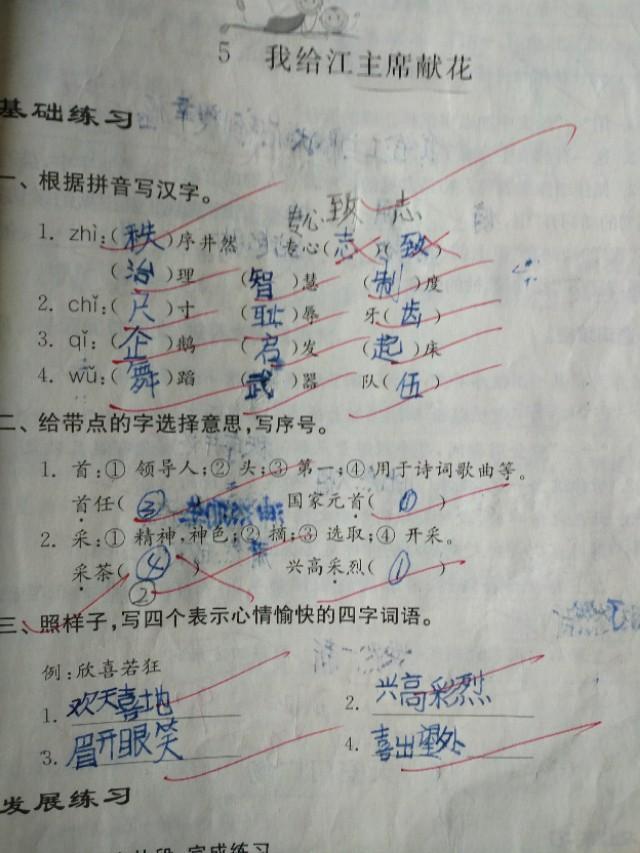 5 我给江主席献花
基础练习
一、根据拼音写汉字。
专心 致 志
1. zhì:(秩)序井然 专心(志)(致)
(治)理 (智)慧 (制)度
2. chǐ:(尺)寸 (耻)辱 牙(齿)
3. qǐ:(企)鹅 (启)发 (起)床
4. wǔ:(舞)蹈 (武)器 队(伍)
二、给带点的字选择意思,写序号。
1. 首:① 领导人;② 头;③ 第一;④ 用于诗词歌曲等。
首任(③) 国家元首(①)
2. 采:① 精神,神色;② 摘;③ 选取;④ 开采。
采茶(④) 兴高采烈(①)
②
三、照样子,写四个表示心情愉快的四字词语。
例:欣喜若狂
1. 欢天喜地 2. 兴高彩烈
3. 眉开眼笑 4. 喜出望外
发展练习
完成练习